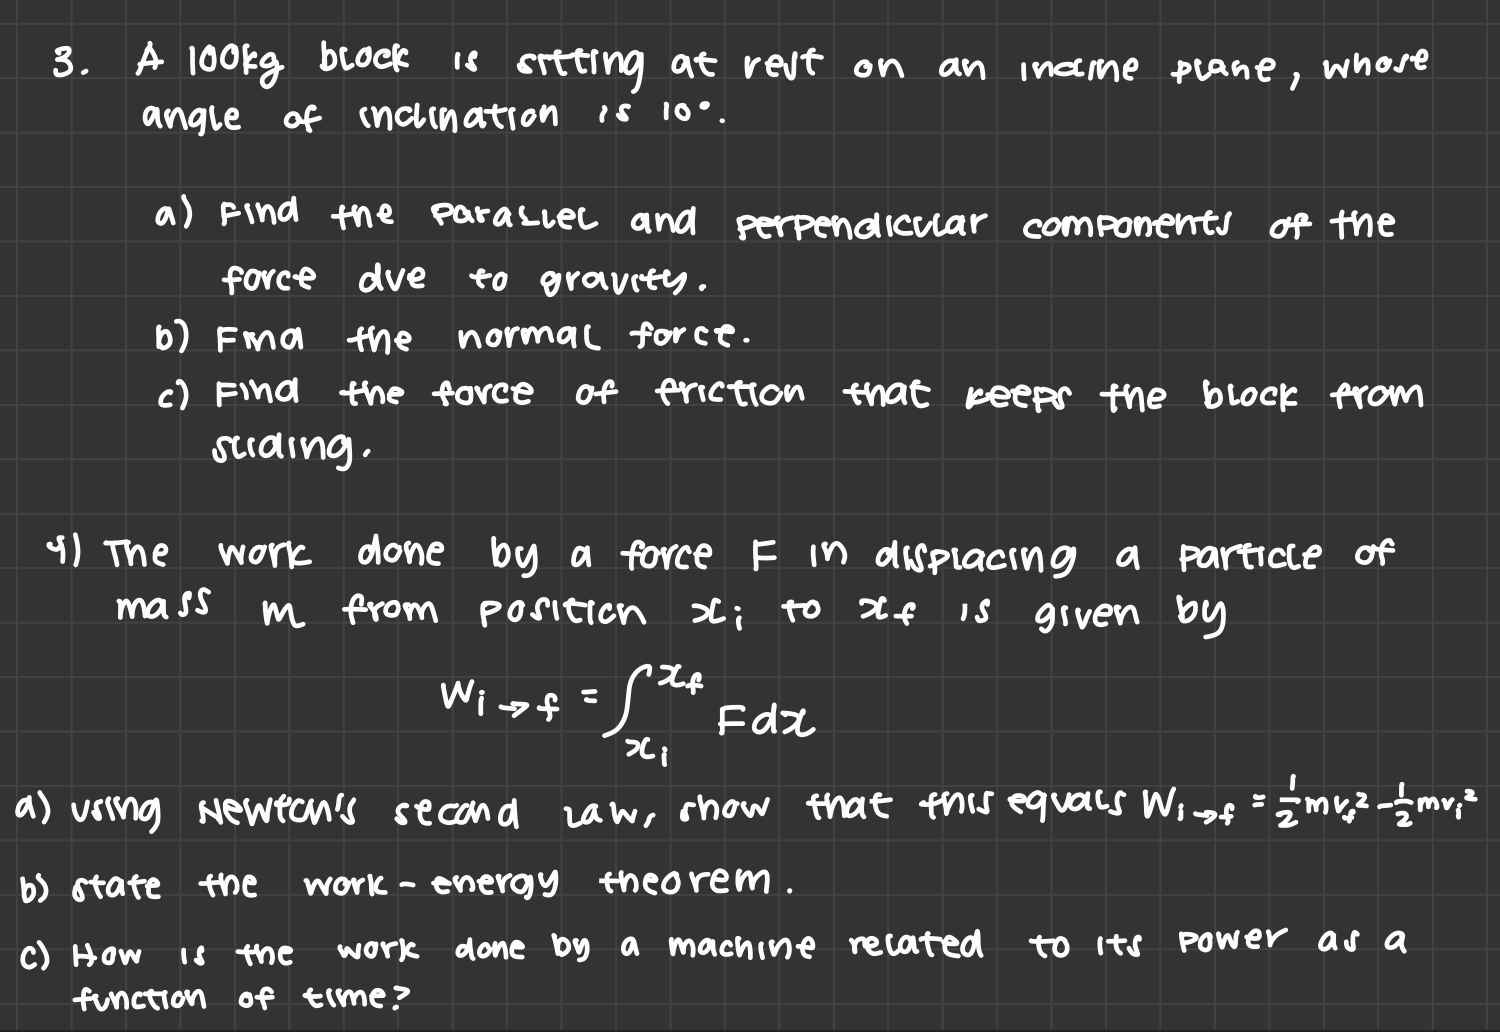 3. A 100kg block is sitting at rest on an incline plane, whose
angle of inclination is 10°.
a) Find the parallel and perpendicular components of the
force due to gravity.
b) Find the normal force.
c) Find the force of friction that keeps the block from
sliding.
4) The work done by a force F in displacing a particle of
mass m from position xᵢ to x_f is given by
W_{i→f} = ∫_{xᵢ}^{x_f} F dx
a) using Newton's second law, show that this equals W_{i→f} = ½mv_f² - ½mvᵢ²
b) state the work-energy theorem.
c) How is the work done by a machine related to its power as a
function of time?